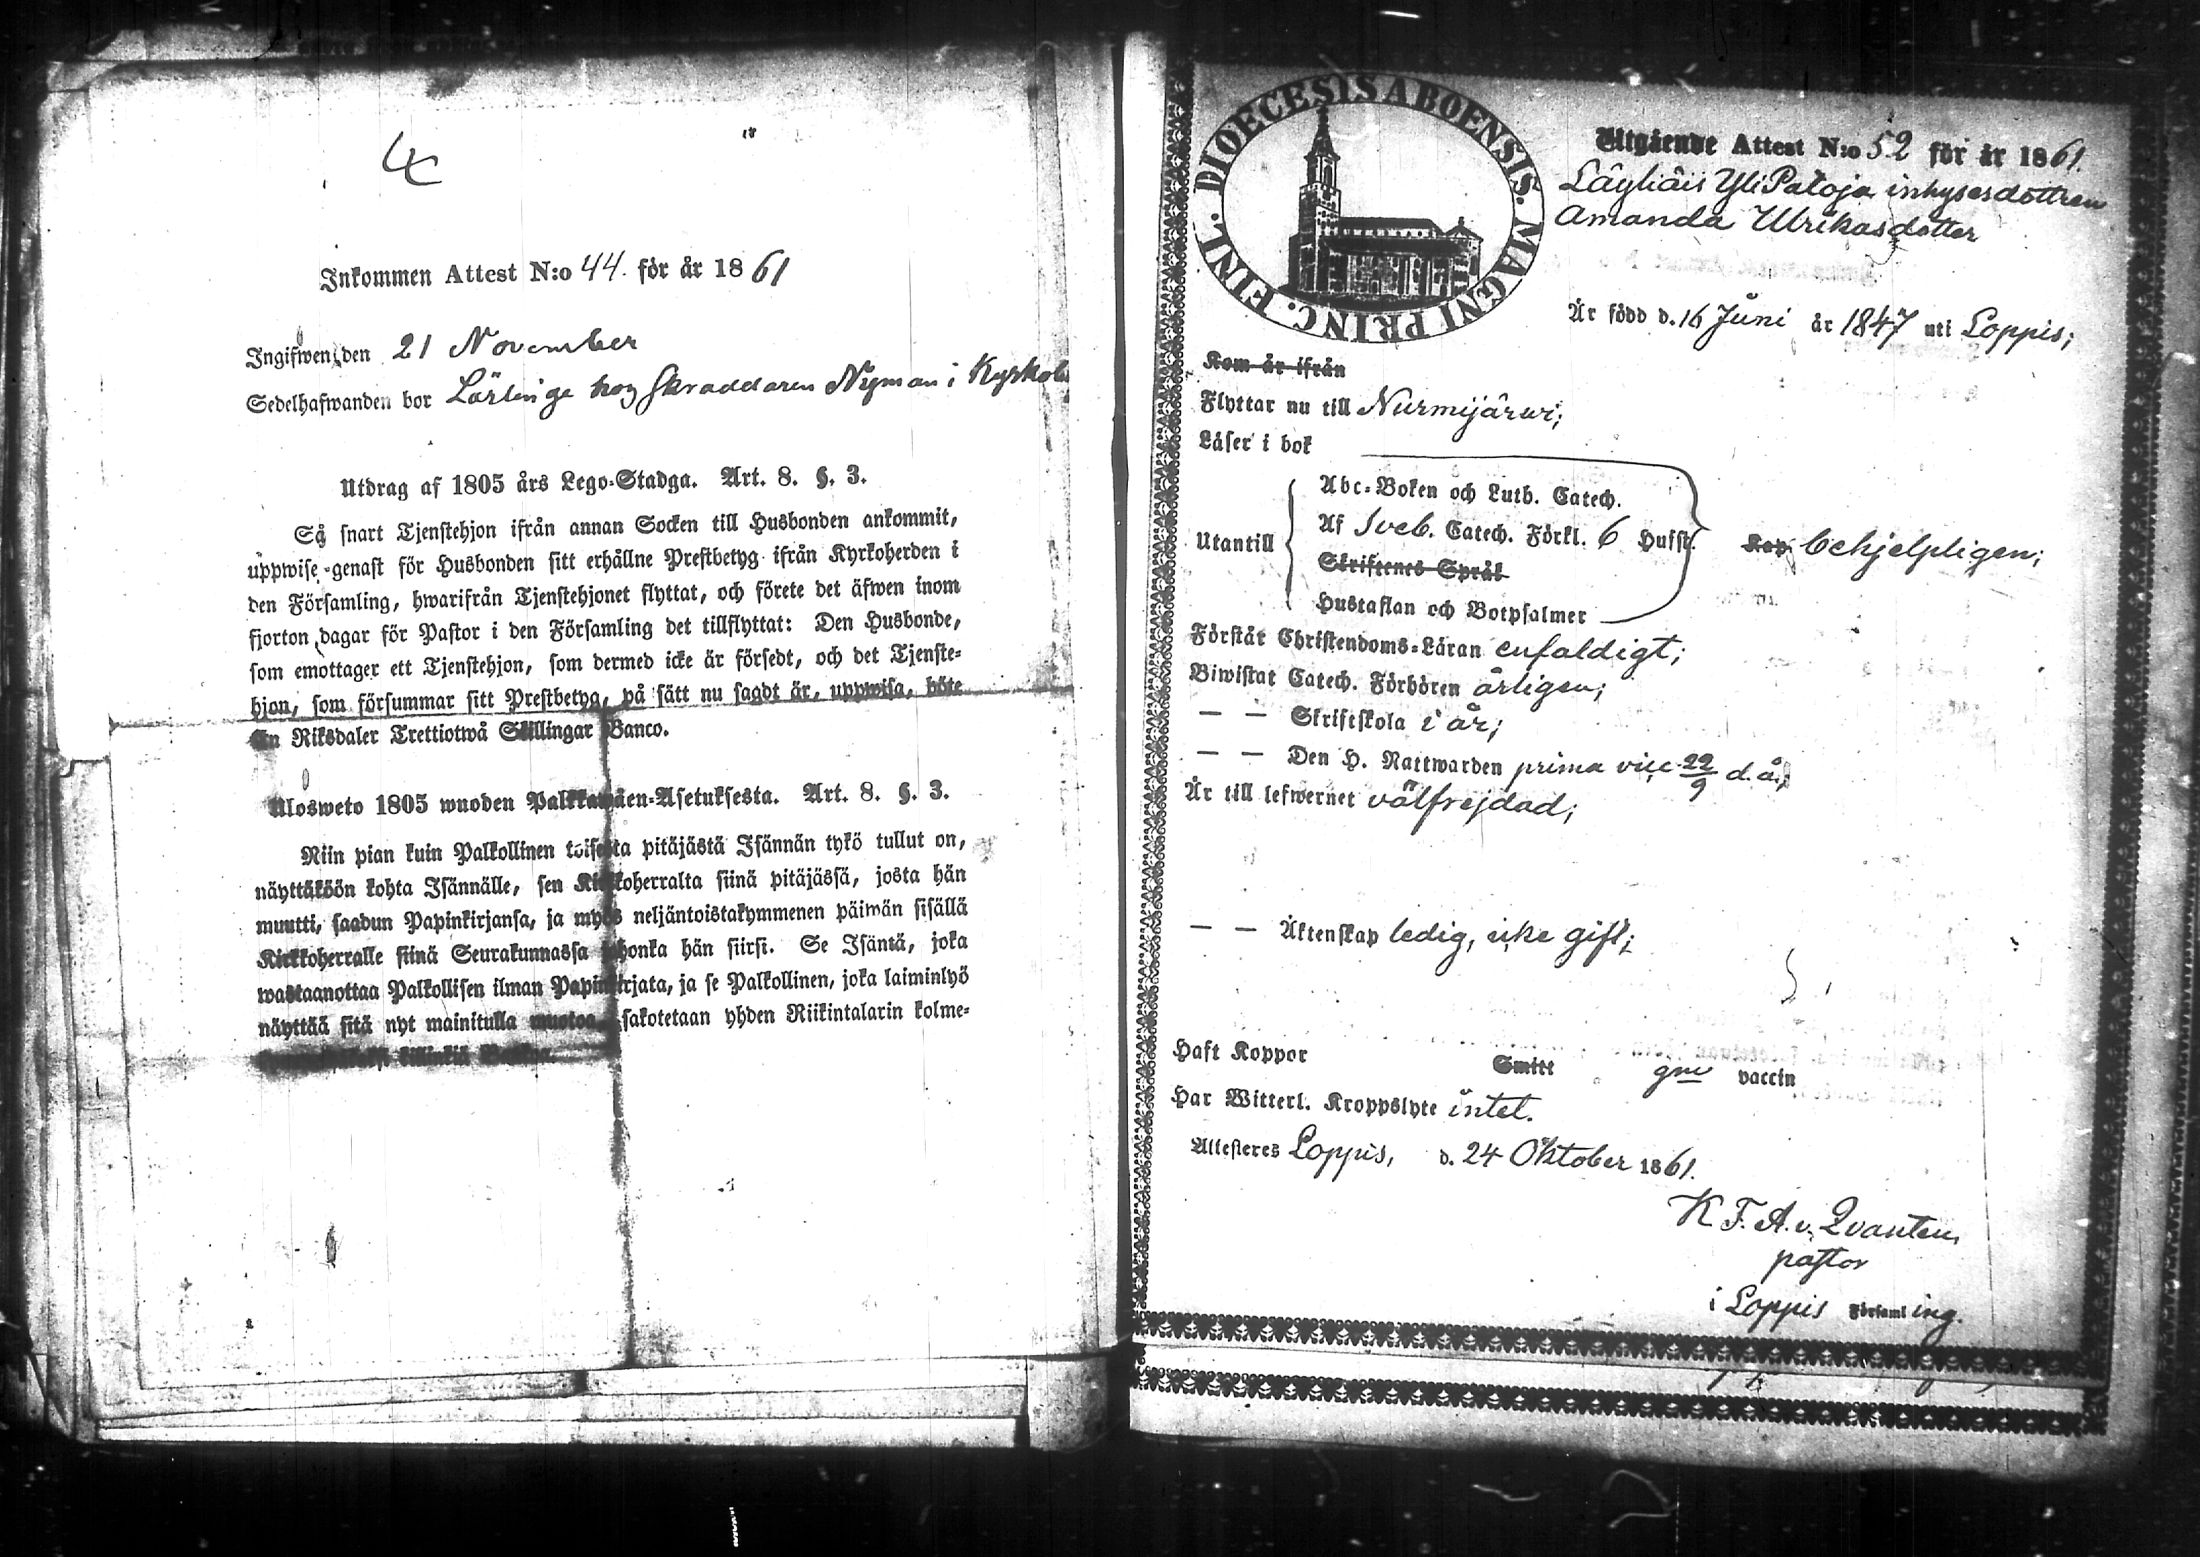 Inkommen Attest N:o 44. för år 1861
Ingifwen den 21 November
Sedelhafwanden bor Lärlinge hos Skraddaren Nyman i Kyrkoby
Utdrag af 1805 års Lego-Stadga. Art. 8. §. 3.
Så snart Tjenstehjon ifrån annan Socken till Husbonden ankommit,
uppwise genast för Husbonden sitt erhållne Prestbetyg ifrån Kyrkoherden i
den Församling, hwarifrån Tjenstehjonet flyttat, och förete det äfwen inom
fjorton dagar för Pastor i den Församling det tillflyttat: Den Husbonde,
som emottager ett Tjenstehjon, som dermed icke är försedt, och det Tjenste-
hjon, som försummar sitt Prestbetyg, på sätt nu sagdt är, uppwisa, böte
En Riksdaler Trettiotwå Skillingar Banco.
Ulosweto 1805 wuoden Palkkawäen-Asetuksesta. Art. 8. §. 3.
Niin pian kuin Palkollinen toisesta pitäjästä Isännän tykö tullut on,
näyttäköön kohta Isännälle, sen Kirkkoherralta siinä pitäjässä, josta hän
muutti, saadun Papinkirjansa, ja myös neljäntoistakymmenen päiwän sisällä
Kirkkoherralle siinä Seurakunnassa johonka hän siirsi. Se Isäntä, joka
wastaanottaa Palkollisen ilman Papinkirjata, ja se Palkollinen, joka laiminlyö
näyttää sitä nyt mainitulla muotoa, sakotetaan yhden Riikintalarin kolme-
killinkiä
DIOECESIS ABOENSIS. MAGNI PRINC. FINL.
Utgående Attest N:o 52 för år 1861.
Läyliäis YliPaloja inhysesdottren
Amanda Ulrikasdotter
Är född d. 16 Juni år 1847 uti Loppis;
Kom år ifrån
Flyttar nu till Nurmijärwi;
Läser i bok
Abc-Boken och Luth. Catech.
Utantill Af Sveb. Catech. Förkl. 6 Hufst. behjelpligen;
Skriftenes Språk
Hustaflan och Botpsalmer
Förstår Christendoms-Läran enfaldigt;
Biwistat Catech. Förhören årligen;
— — Skriftskola i år;
— — Den H. Nattwarden prima vice 22/9 d. å.;
Är till lefwernet välfrejdad;
— — Äktenskap ledig, icke gift;
Haft Koppor Smitt gm vaccin
Har Witterl. Kroppslyte intet.
Attesteres Loppis, d. 24 Oktober 1861.
K F. A. v. Qvanten,
pastor
i Loppis Församling.